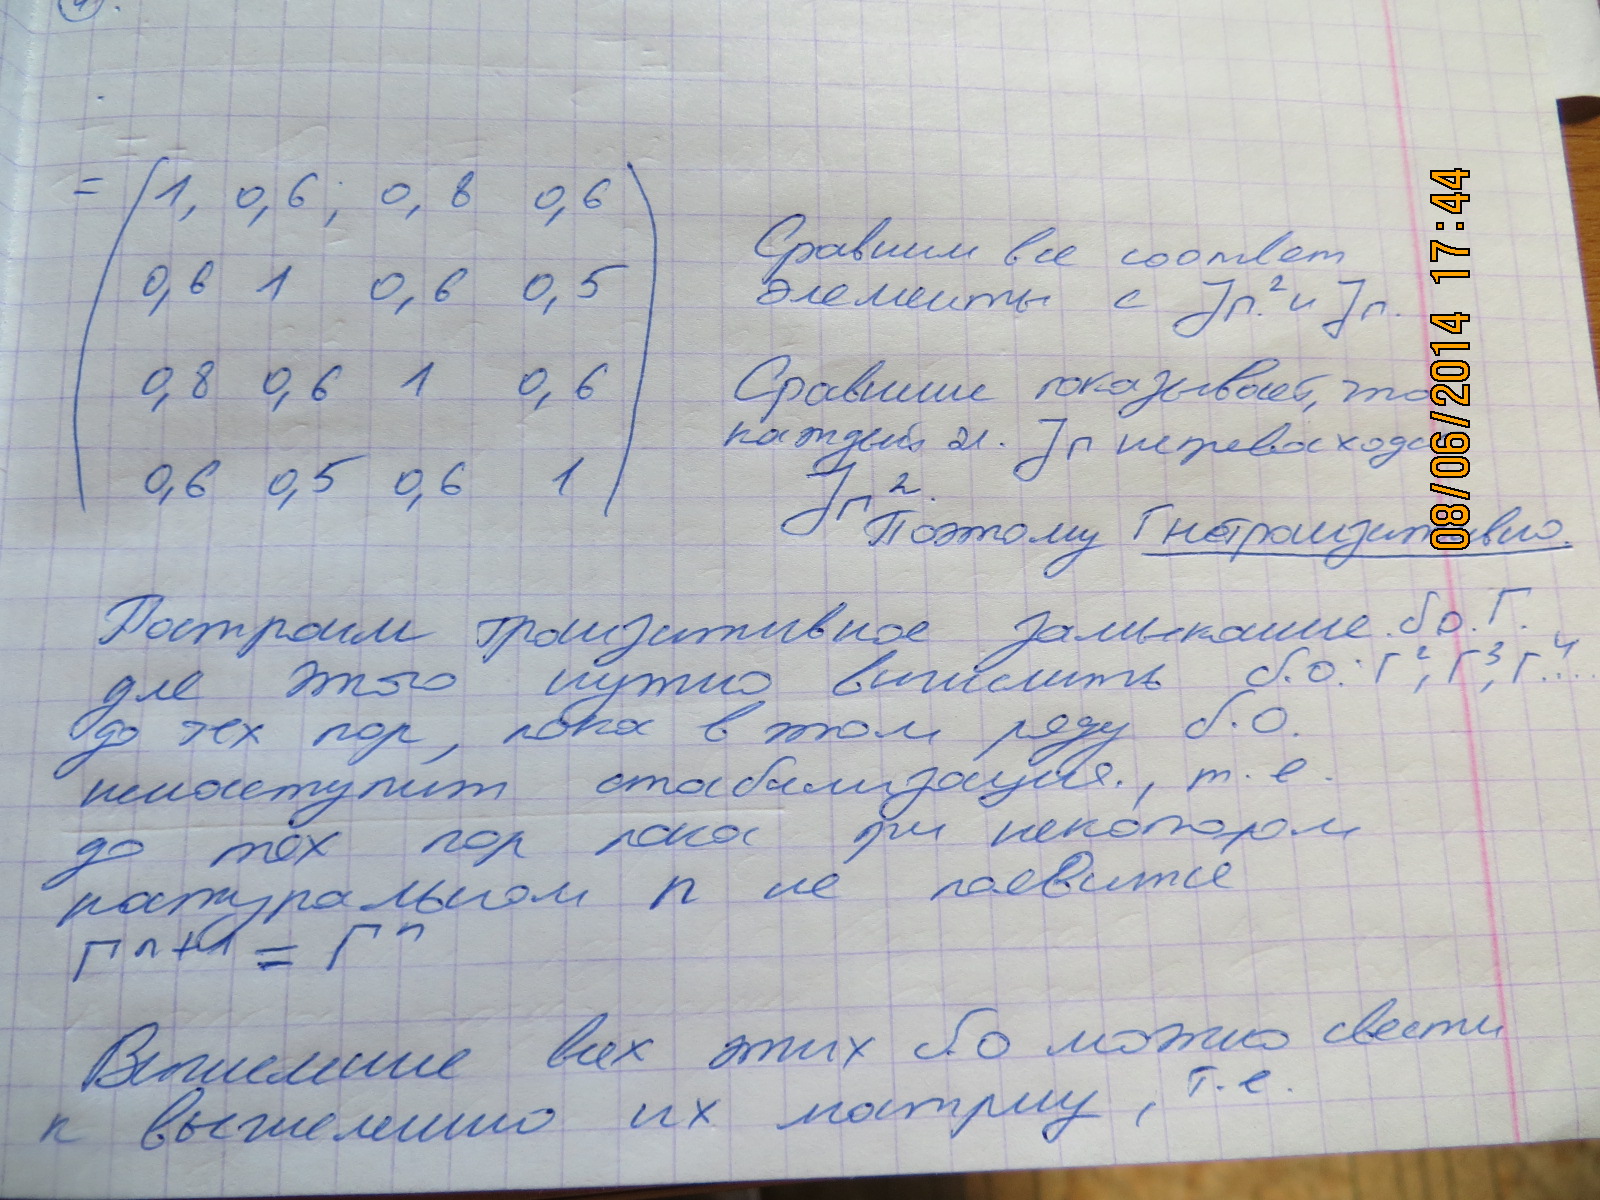 4.
= (1, 0,6; 0,8 0,6)
0,6 1 0,6 0,5
0,8 0,6 1 0,6
0,6 0,5 0,6 1
Сравним все соответ
элементы с Jп.² и Jп.
Сравнение показывает, что
каждый эл. Jп непревосходи
Jп².
Поэтому Г нетранзитивно.
Построим транзитивное замыкание. б.о. Г.
для этого нужно вычислить б.о: Г², Г³, Г⁴...
до тех пор, пока в этом ряду б.о.
ненаступит стабилизация., т.е.
до тех пор пока при некотором
натуральном n не появится
Гⁿ⁺¹ = Гⁿ
Вычисление всех этих б.о можно свести
к вычислению их матриц, т.е.
08/06/2014 17:44